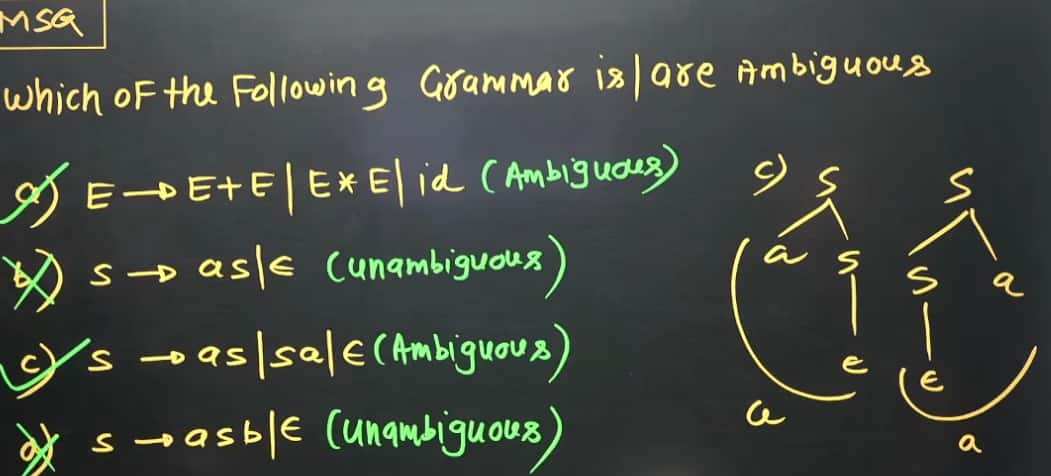 MSQ
Which OF the Following Grammar is|are Ambiguous
a) E → E+E | E*E | id (Ambiguous)
b) S → as|ϵ (unambiguous)
c) S → as|sa|ϵ (Ambiguous)
d) S → asb|ϵ (unambiguous)
c) S S
a S S a
ϵ ϵ
a a